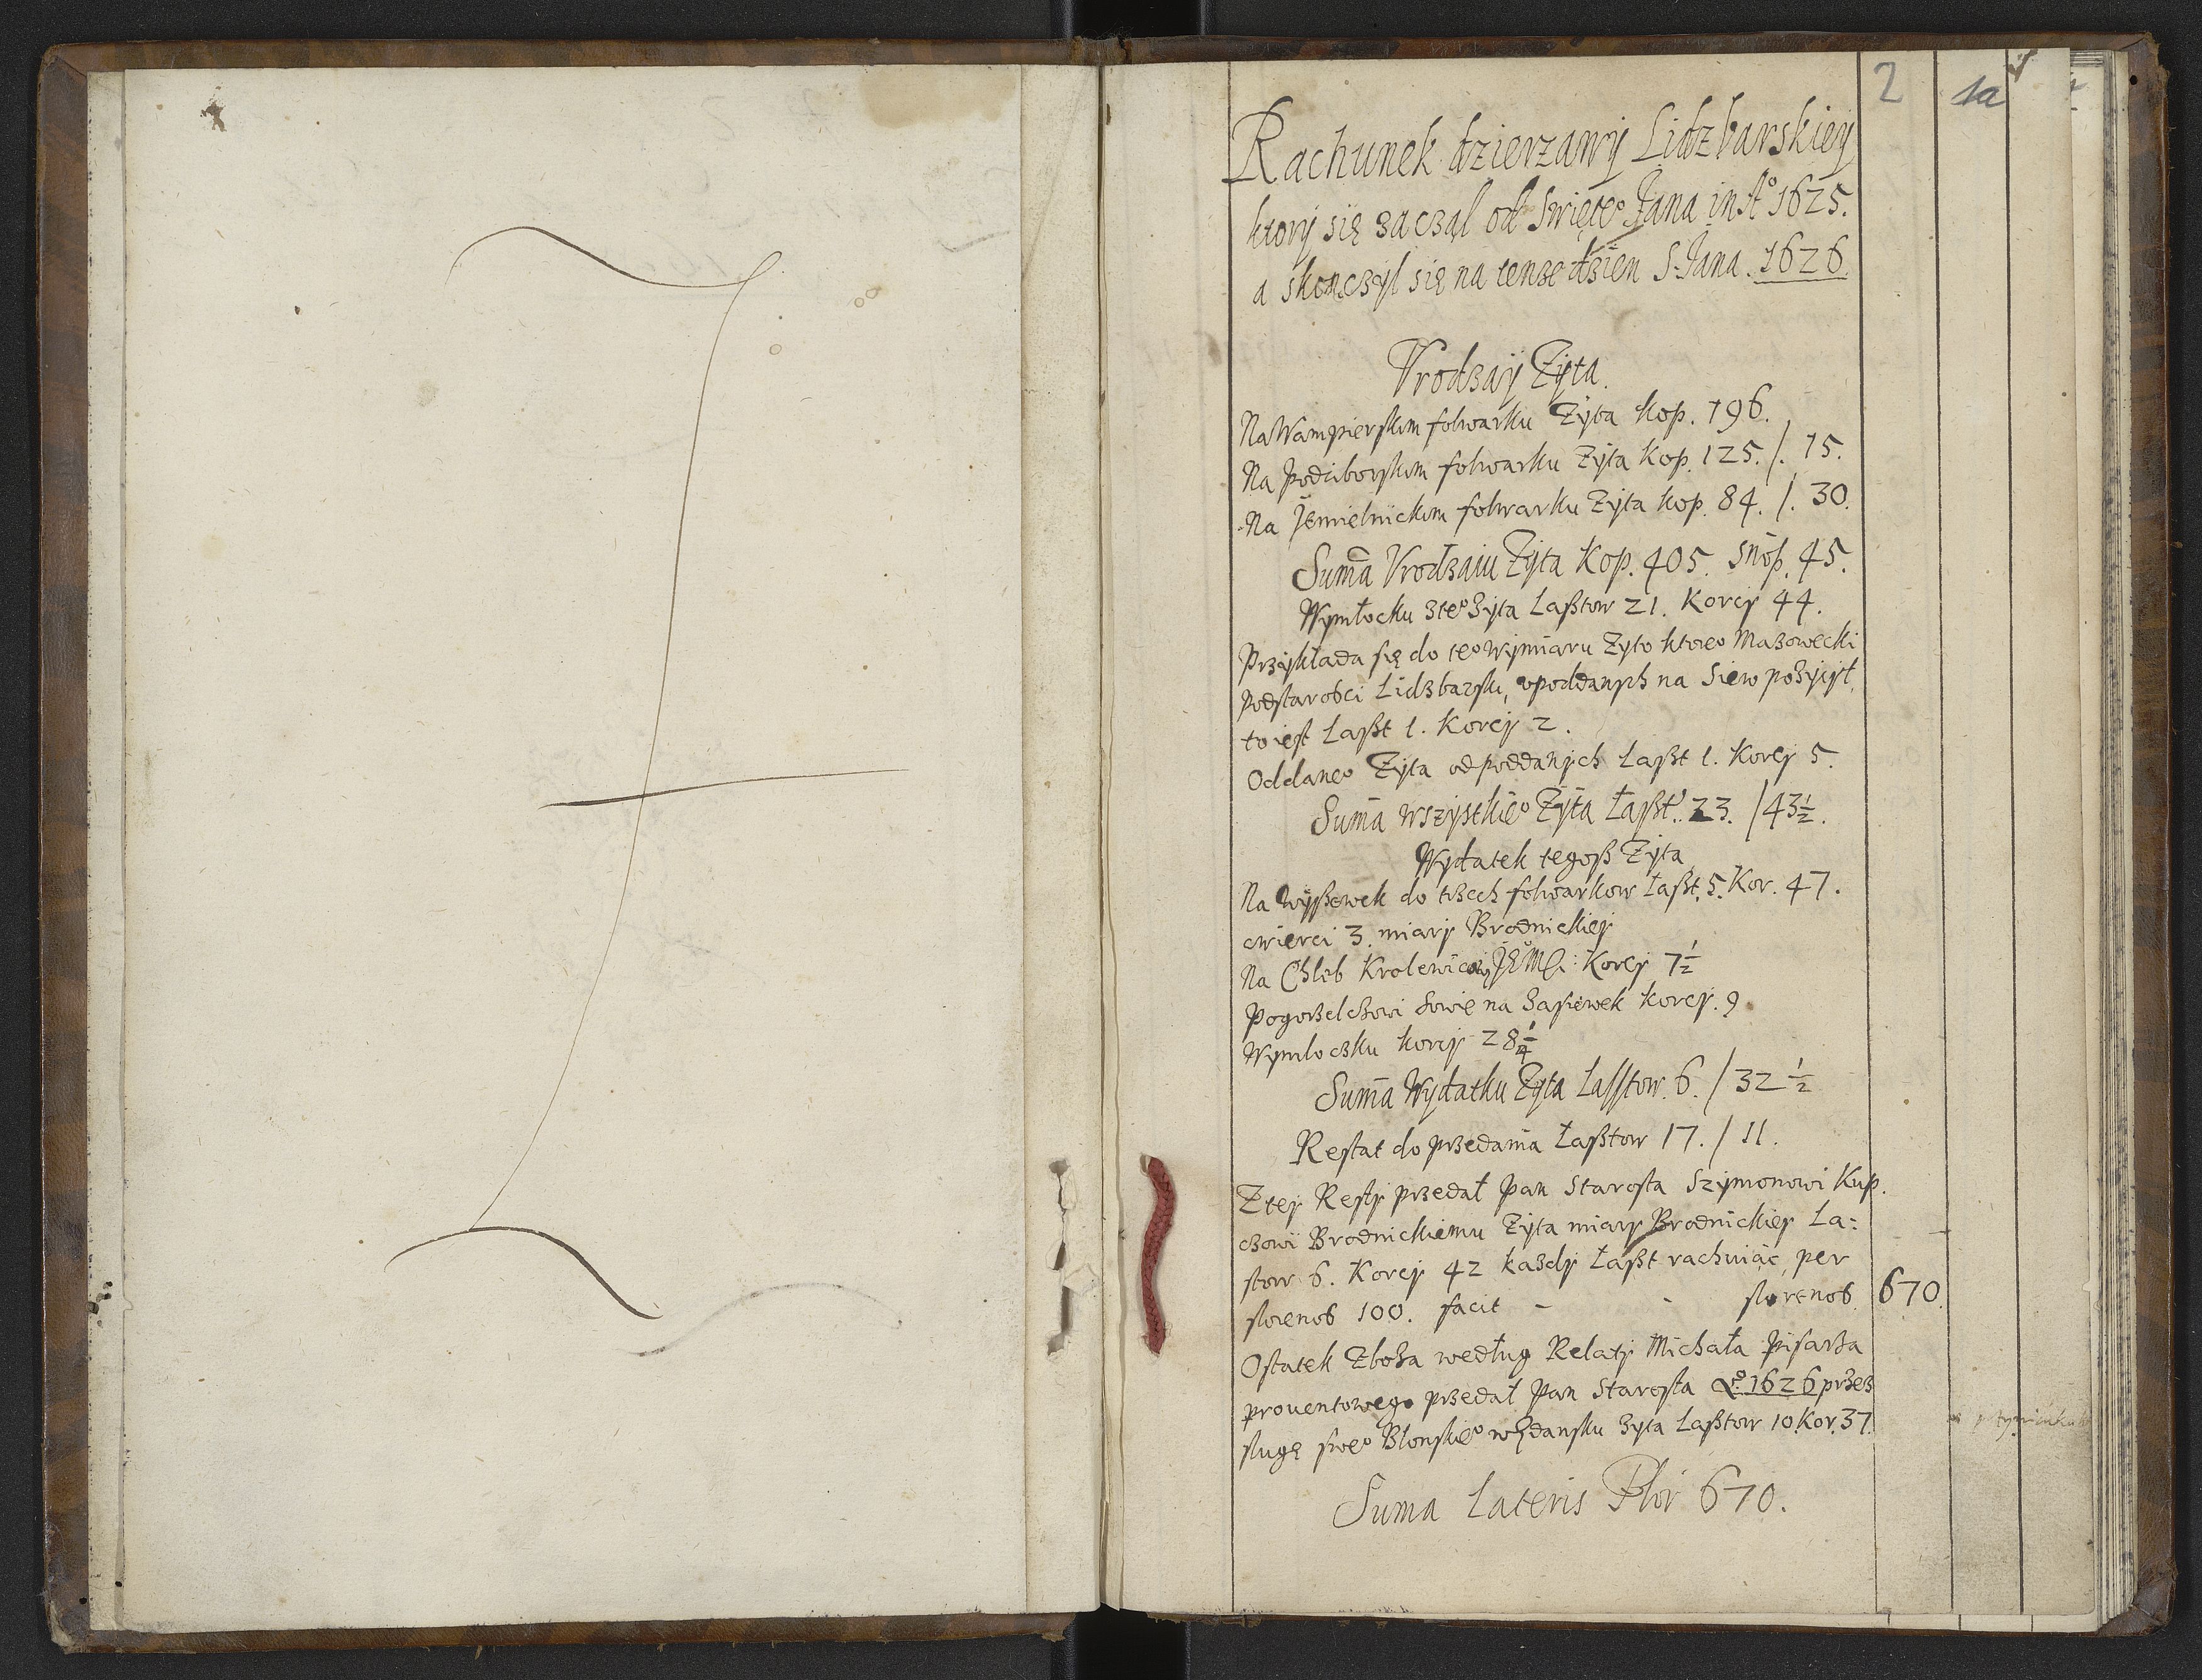 2
1a
Rachunek dzierzawÿ Lidzbarskieÿ
ktorÿ się zaczął od Swięteº Jana in Aº 1625.
a skonczÿl się na tenze dzien S. Jana. 1626.
Vrodzaÿ Zÿta.
Na Wampierskim folwarku Zÿta kop. 196.
Na Podciborskim folwarku Zÿta Kop. 125. /. 15.
Na Jemielnickim folwarku Zÿta kop. 84. /. 30.
Suma Vrodzaiu Zÿta Kop. 405. snop. 45.
Wymłocku zteº Zÿta Lasztow 21. Korcÿ 44.
Przÿkłada się do teº wÿmiaru Zyto ktoreº Mazowecki
Podstarosci Lidzbarski, v poddanÿch na Siew pozÿcÿł,
to iest Laszt 1. Korcÿ 2.
Oddaneº Zÿta od poddanÿch Laszt 1. Korcÿ 5.
Suma wszÿstkieº Zÿta Łaszt. 23. / 43½.
Wÿdatek tegosz Zÿta
Na wÿszewek do trzech folwarkow Łaszt. 5. Kor. 47.
cwierci 3. miarÿ Brodnickieÿ
Na Chleb Krolewicowÿ JEºM: Korcÿ 7½
Pogorzelczowi Sowie na Zasiewek korcÿ. 9
Wymloczku korcÿ 28¼
Suma Wÿdatku Zÿta Lasstow. 6. / 32 ½
Restat do przedania Łasztow 17. / 11.
Z teÿ Restÿ przedał Pan Starosta Szÿmonowi Kup.
czowi Brodnickiemu Zÿta miarÿ Brodnickieÿ La:
stow 6. Korcÿ 42 kazdÿ Łaszt rachuiąc, per
florenos 100. facit - - florenos. 670.
Ostatek Zboza według Relatÿ Michała Pisarza
prouentowego przedał Pan Starosta Aº. 1626 przez
slugę sweº Blonskieº w Gdansku Zyta Lasztow 10. Kor. 37.
Suma Lateris Flor 670.